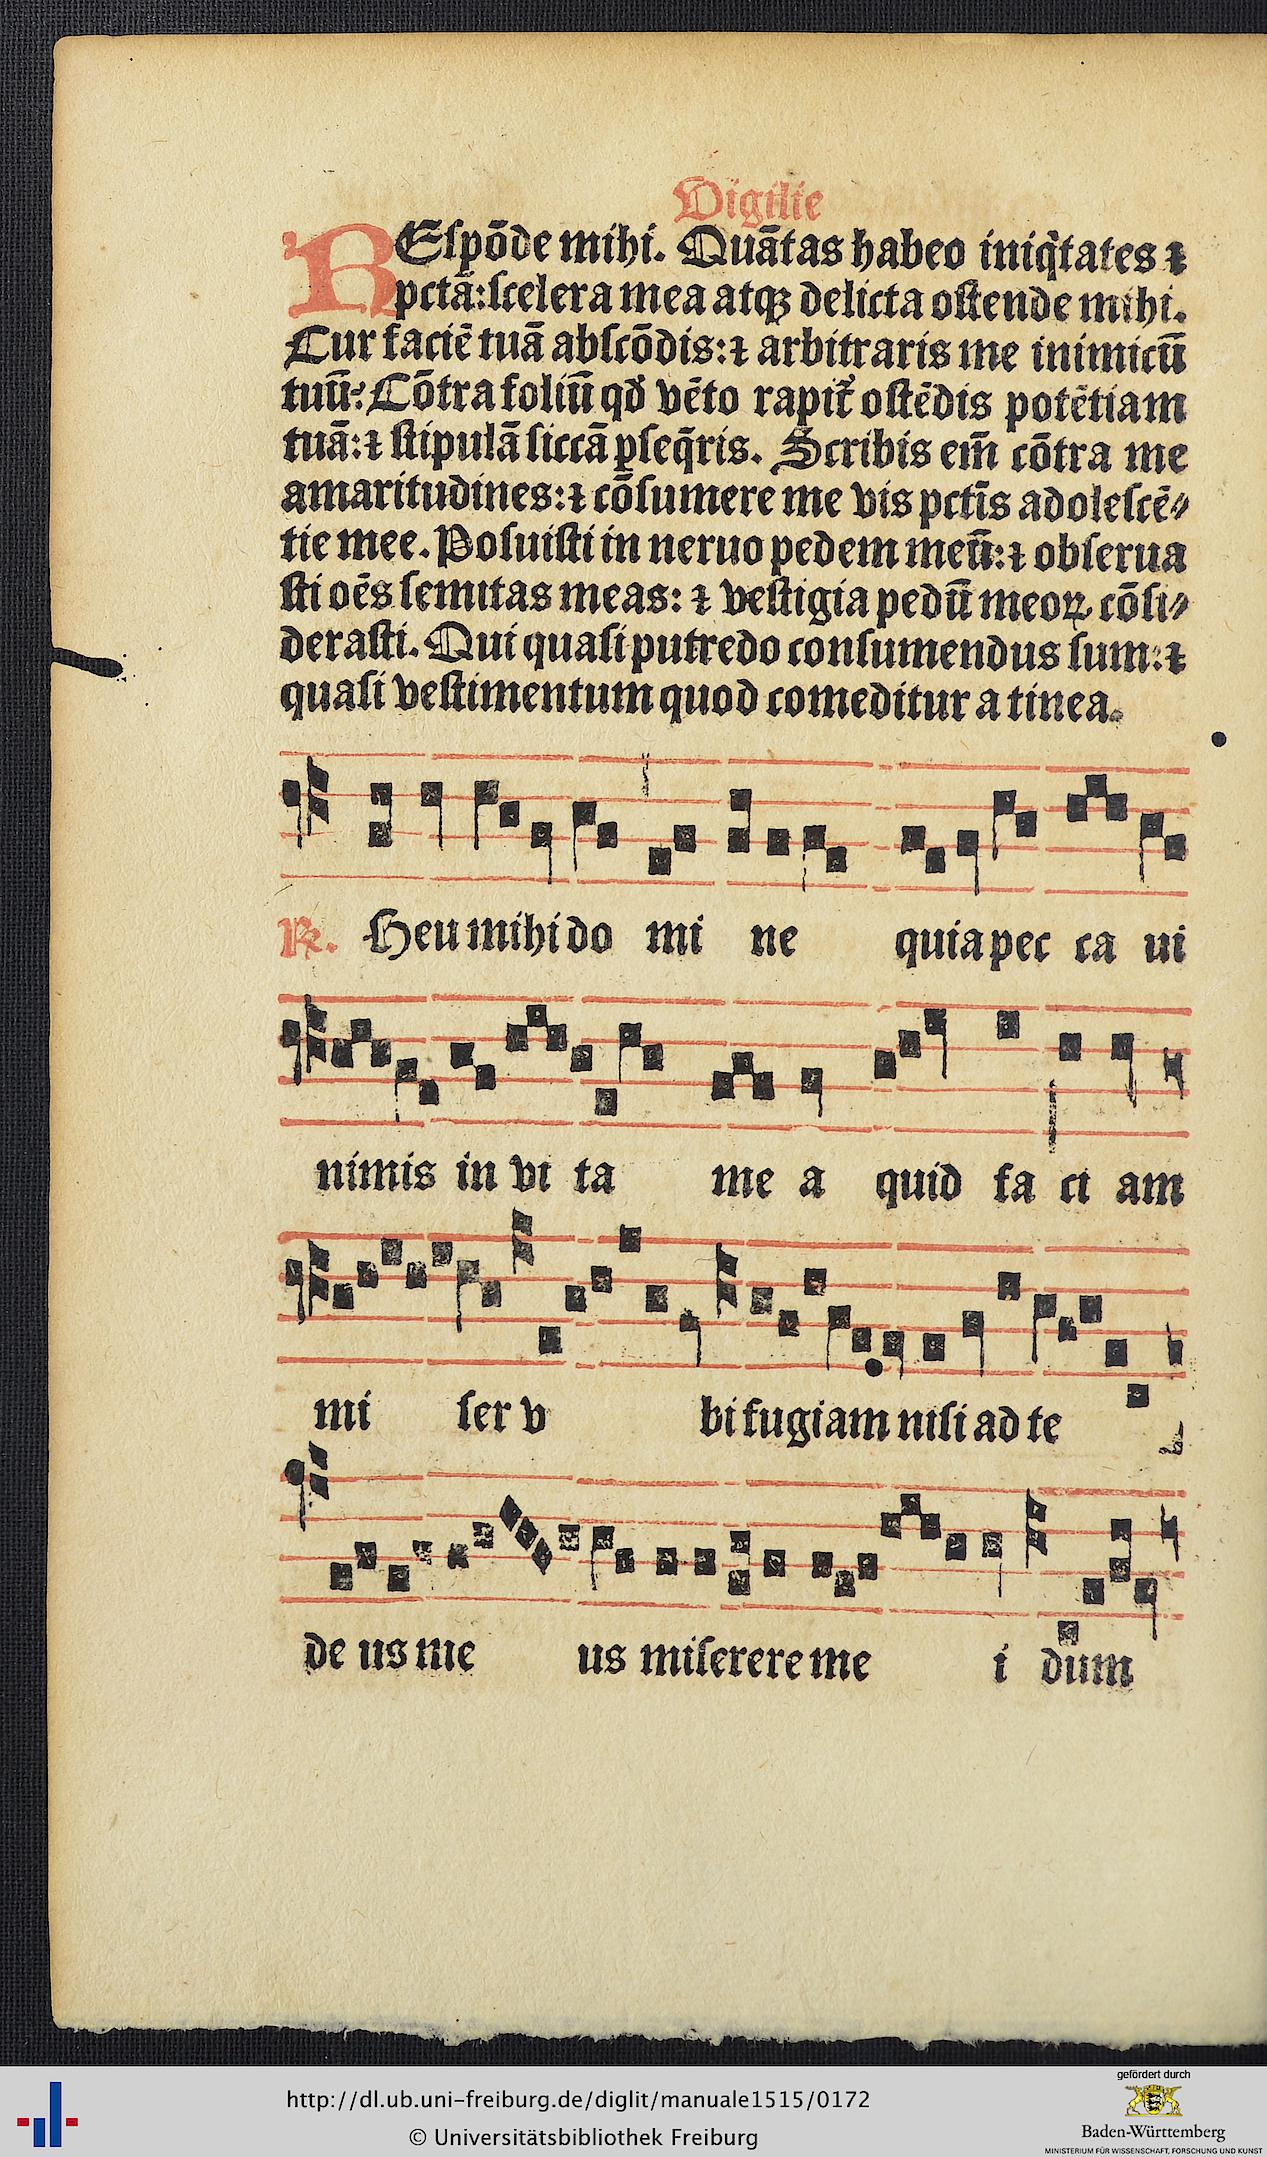 Vigilie
REſpōde mihi. Quātas habeo iniq̄tates ⁊
pctā: ſcelera mea atqꝫ delicta oſtende mihi.
Cur faciē tuā abſcōdis: ⁊ arbitraris me inimicū
tuū? Cōtra foliū qđ vēto rapit̄ oſtēdis potētiam
tuā: ⁊ ſtipulā ſiccā ꝑſeq̄ris. Scribis em̄ cōtra me
amaritudines: ⁊ cōſumere me vis pctīs adoleſcē⸗
tie mee. Poſuiſti in neruo pedem meū: ⁊ obſerua
ſti oēs ſemitas meas: ⁊ veſtigia pedū meoꝝ cōſi⸗
deraſti. Qui quaſi putredo conſumendus ſum: ⁊
quaſi veſtimentum quod comeditur a tinea.
℞. Heu mihi do mi ne quia pec ca ui
nimis in vi ta me a quid fa ci am
mi ſer v bi fugiam niſi ad te
de us me us miſerere me i dum
http://dl.ub.uni-freiburg.de/diglit/manuale1515/0172
© Universitätsbibliothek Freiburg
gefördert durch
Baden-Württemberg
MINISTERIUM FÜR WISSENSCHAFT, FORSCHUNG UND KUNST